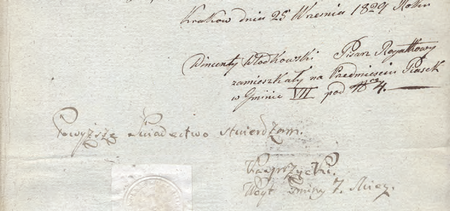 Krakow dnia 25 Wrzesnia 1829 Roku
Wincenty Włodkowski Pisarz Rogatkowy
zamieszkały na Przedmieściu Piasek
w Gminie VII pod No 4.
Powyższe Świadectwo stwierdzam.
Woyt Gminy 7. Miey.